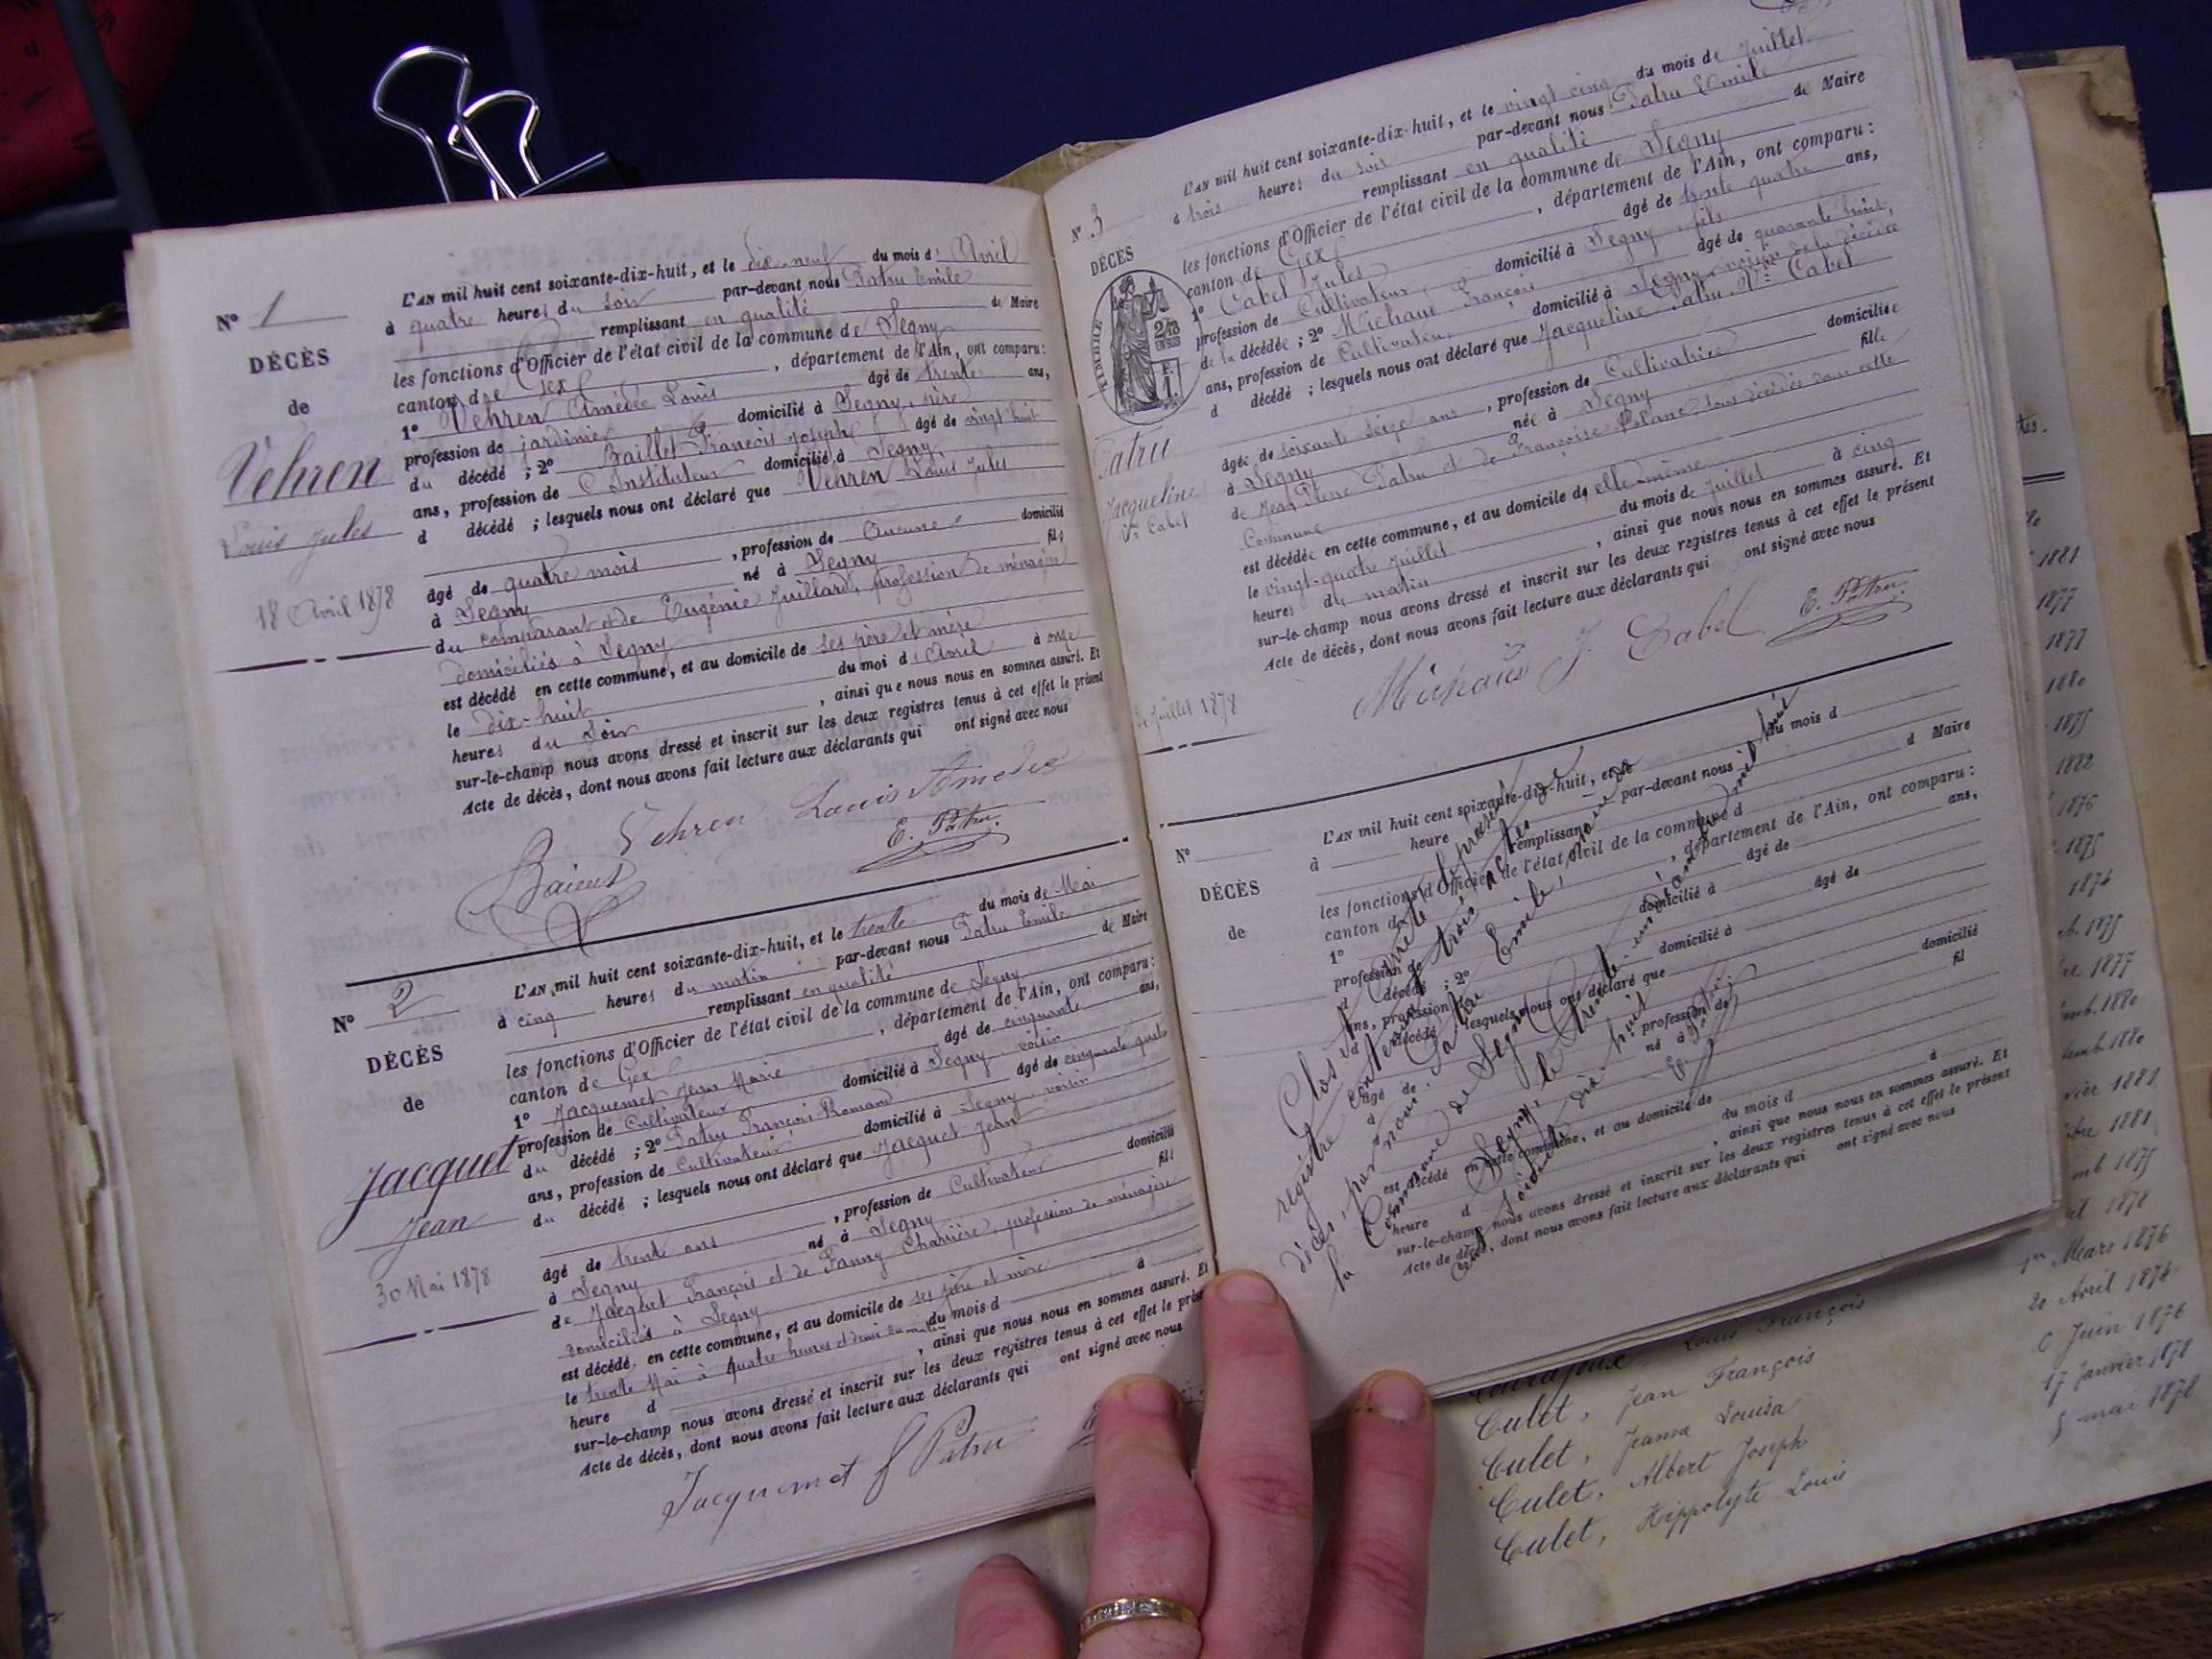 N° 1
DÉCÈS
de
Vehren
Louis Jules
18 Avril 1878
L'AN mil huit cent soixante-dix-huit, et le dix-neuf du mois d' Avril
à quatre heures du soir par-devant nous Patru Emile
remplissant en qualité de Maire
les fonctions d'Officier de l'état civil de la commune de Segny
canton de Gex, département de l'Ain, ont comparu :
1° Vehren Amédée Louis âgé de trente ans,
profession de jardinier domicilié à Segny, père
du décédé ; 2° Baillet François Joseph âgé de vingt huit
ans, profession de Instituteur domicilié à Segny
d décédé ; lesquels nous ont déclaré que Vehren Louis Jules
âgé de quatre mois, profession de Aucune domicilié
à Segny né à Segny fils
du comparant et de Eugénie Juillard, profession de ménagère
domiciliés à Segny
est décédé en cette commune, et au domicile de ses père et mère
le dix-huit du moi d' Avril à onze
heures du soir, ainsi que nous nous en sommes assuré. Et
sur-le-champ nous avons dressé et inscrit sur les deux registres tenus à cet effet le présent
Acte de décès, dont nous avons fait lecture aux déclarants qui ont signé avec nous
Vehren Louis Amedee
E. Patru.
N° 2
DÉCÈS
de
Jacquet
Jean
30 Mai 1878
L'AN mil huit cent soixante-dix-huit, et le trente du mois de Mai
à cinq heures du matin par-devant nous Patru Emile
remplissant en qualité de Maire
les fonctions d'Officier de l'état civil de la commune de Segny
canton de Gex, département de l'Ain, ont comparu :
1° Jacquemet Jean Marie âgé de cinquante ans,
profession de Cultivateur domicilié à Segny voisin
du décédé ; 2° Patru François Romand âgé de cinquante quatre
ans, profession de Cultivateur domicilié à Segny voisin
du décédé ; lesquels nous ont déclaré que Jacquet Jean
âgé de trente ans, profession de Cultivateur domicilié
à Segny né à Segny fils
de Jacquet François et de Fanny Charrière, profession de ménagère
domiciliés à Segny
est décédé en cette commune, et au domicile de ses père et mère
le trente Mai à quatre heures et demi du matin du mois d à
heure d, ainsi que nous nous en sommes assuré. Et
sur-le-champ nous avons dressé et inscrit sur les deux registres tenus à cet effet le présent
Acte de décès, dont nous avons fait lecture aux déclarants qui ont signé avec nous
Jacquemet f Patru
N° 3
DÉCÈS
TIMBRE
Patru
Jacqueline
Vve Cabel
Juillet 1878
L'AN mil huit cent soixante-dix-huit, et le vingt cinq du mois de Juillet
à trois heures du soir par-devant nous Patru Emile
remplissant en qualité de Maire
les fonctions d'Officier de l'état civil de la commune de Segny
canton de Gex, département de l'Ain, ont comparu :
1° Cabel Jules âgé de trente quatre ans,
profession de Cultivateur domicilié à Segny, fils
de la décédée ; 2° Michaud François âgé de quarante huit
ans, profession de Cultivateur domicilié à Segny, voisin de la décédée
d décédé ; lesquels nous ont déclaré que Jacqueline Patru Vve Cabel
âgée de soixante seize ans, profession de Cultivatrice domiciliée
à Segny née à Segny fille
de Jean Pierre Patru et de Françoise Blanc, tous décédés dans cette
Commune
est décédée en cette commune, et au domicile de elle-même
le vingt-quatre Juillet du mois de Juillet à cinq
heures du matin, ainsi que nous nous en sommes assuré. Et
sur-le-champ nous avons dressé et inscrit sur les deux registres tenus à cet effet le présent
Acte de décès, dont nous avons fait lecture aux déclarants qui ont signé avec nous
Michaud J. Cabel E. Patru
N°
DÉCÈS
de
L'AN mil huit cent soixante-dix-huit, et le du mois d
à heure par-devant nous
remplissant d Maire
les fonctions d'Officier de l'état civil de la commune d
canton de, département de l'Ain, ont comparu :
1° âgé de ans,
profession de domicilié à
d décédé ; 2° âgé de
ans, profession domicilié à
d décédé lesquels nous ont déclaré que
âgé de profession de domicilié
à né à fil
est décédé en cette commune, et au domicile de
du mois d à
heure d, ainsi que nous nous en sommes assuré. Et
sur-le-champ nous avons dressé et inscrit sur les deux registres tenus à cet effet le présent
Acte de décès, dont nous avons fait lecture aux déclarants qui ont signé avec nous
Clos et arrêté le présent
registre contenant trois actes de
décès, par nous, Patru Emile, maire de
la Commune de Segny
Segny, le trente-un décembre mil huit
cent soixante dix-huit
E. Patru
1881
1877
1877
1880
1875
1882
1876
1875
1874
1875
1877
1880
1880
1881
1881
1875
1878
1er Mars 1876
Louis François 20 Avril 1874
Culet, Jean François 6 Juin 1876
Culet, Jeanne Louisa 17 Janvier 1878
Culet, Albert Joseph 5 mai 1878
Culet, Hippolyte Louis